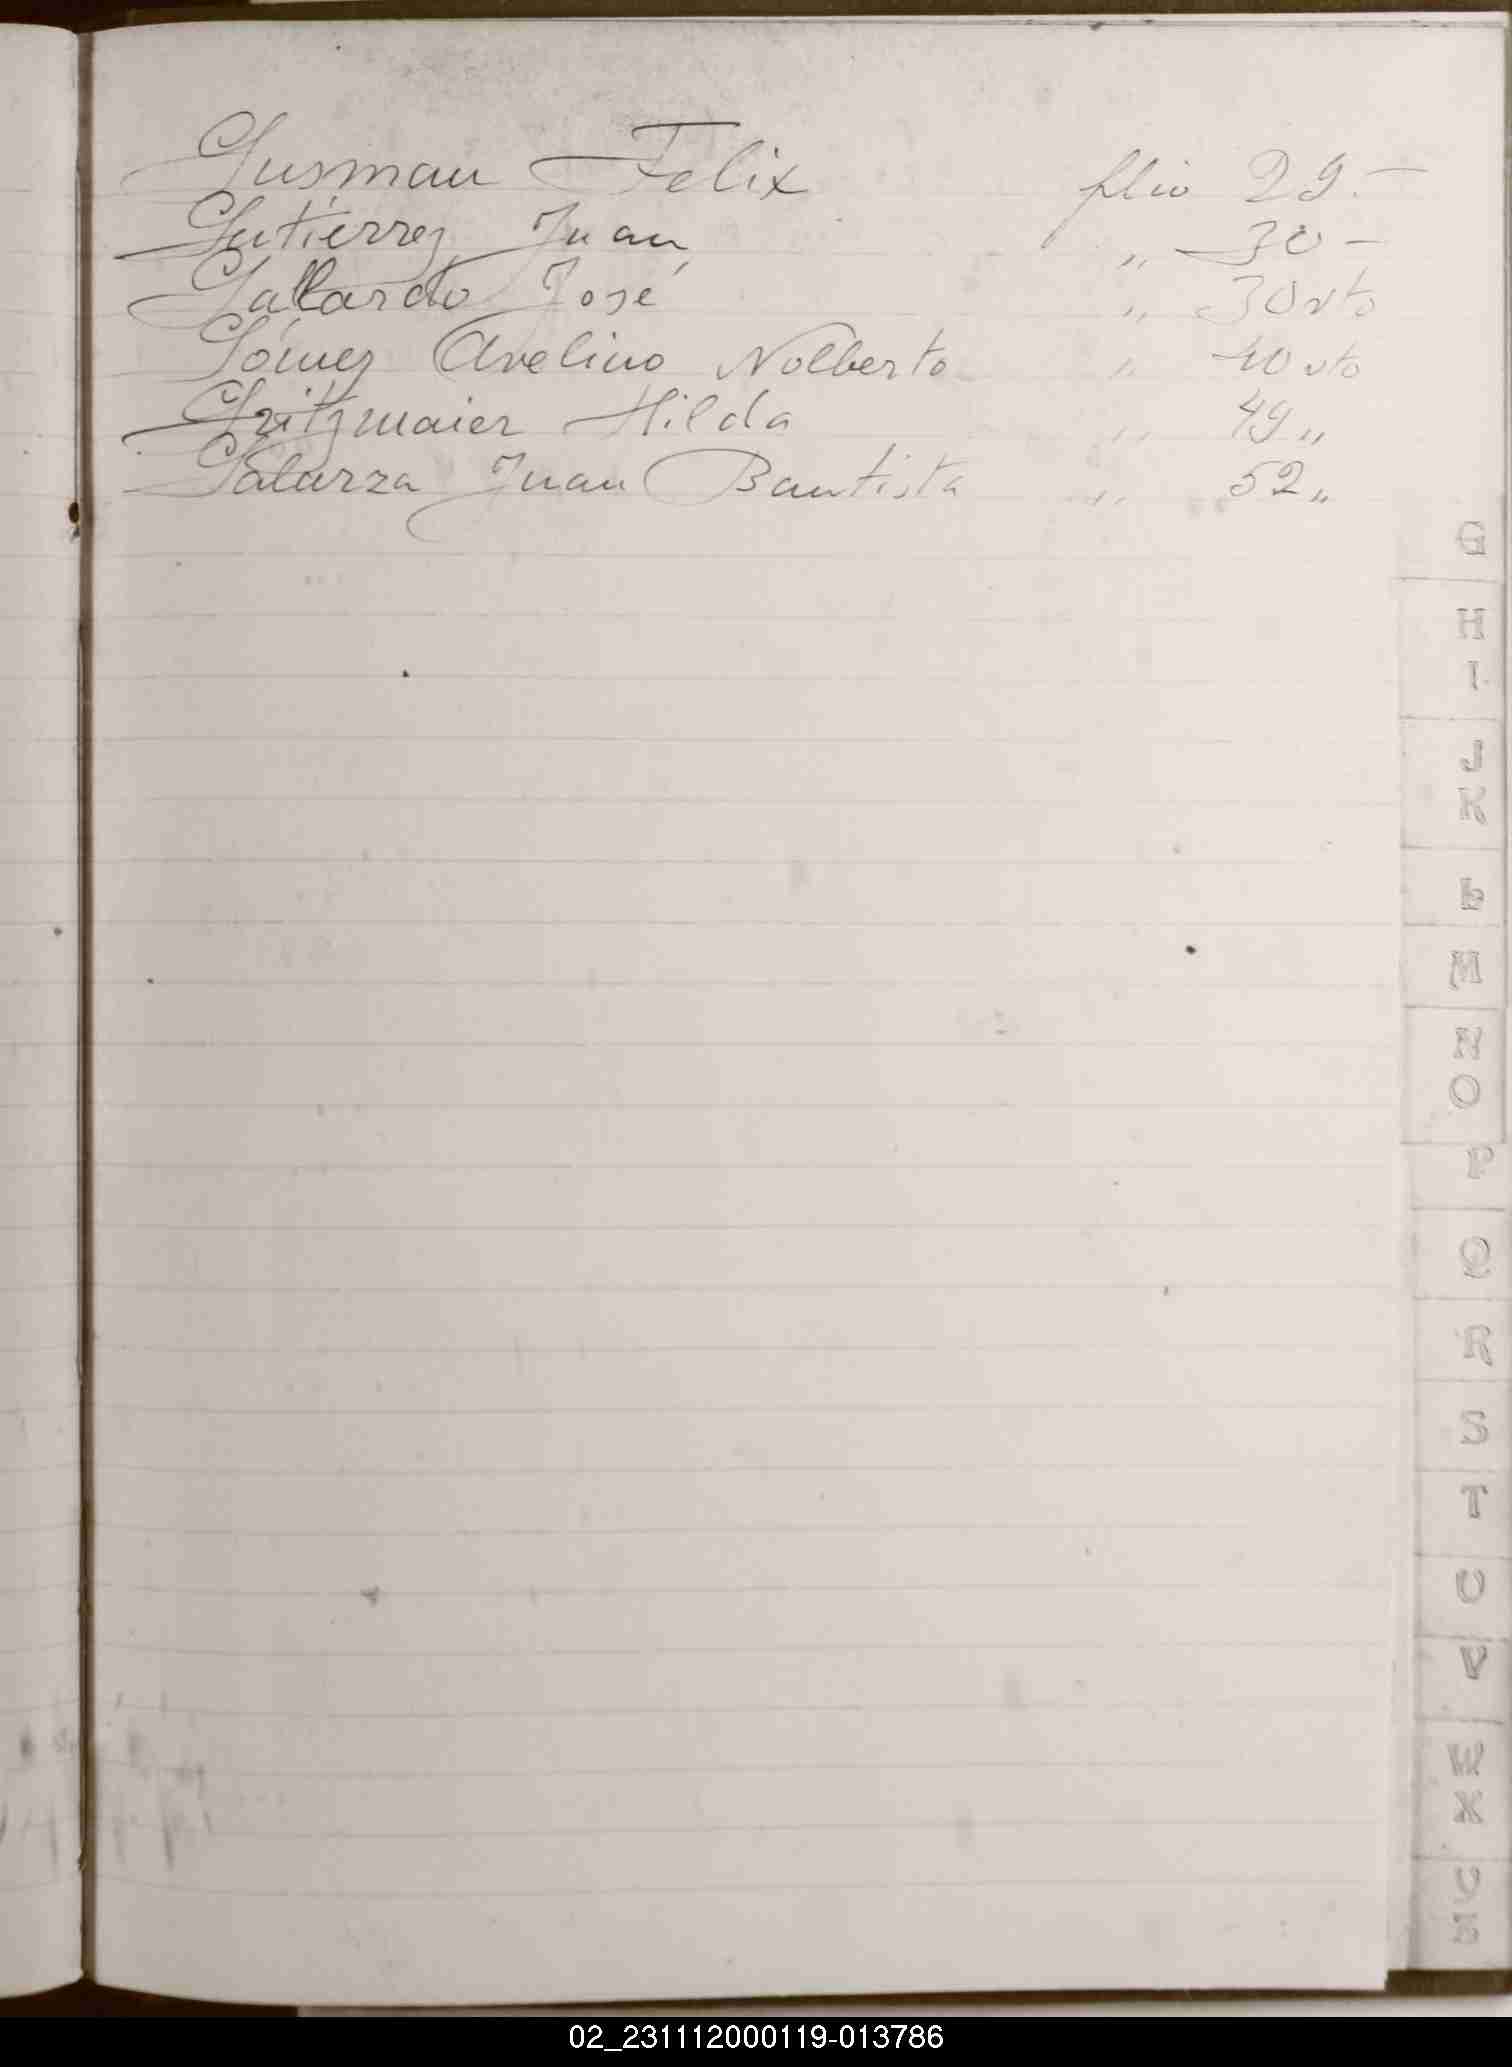 Gusman Felix flio 29.—
Gutiérrez Juan „ 30 —
Gallardo José „ 30 vto
Gómez Avelino Nolberto „ 40 vto
Gritzmaier Hilda „ 49 „
Galarza Juan Bautista „ 52 „
G
H
I
J
K
L
M
N
O
P
Q
R
S
T
U
V
W
X
02_231112000119-013786